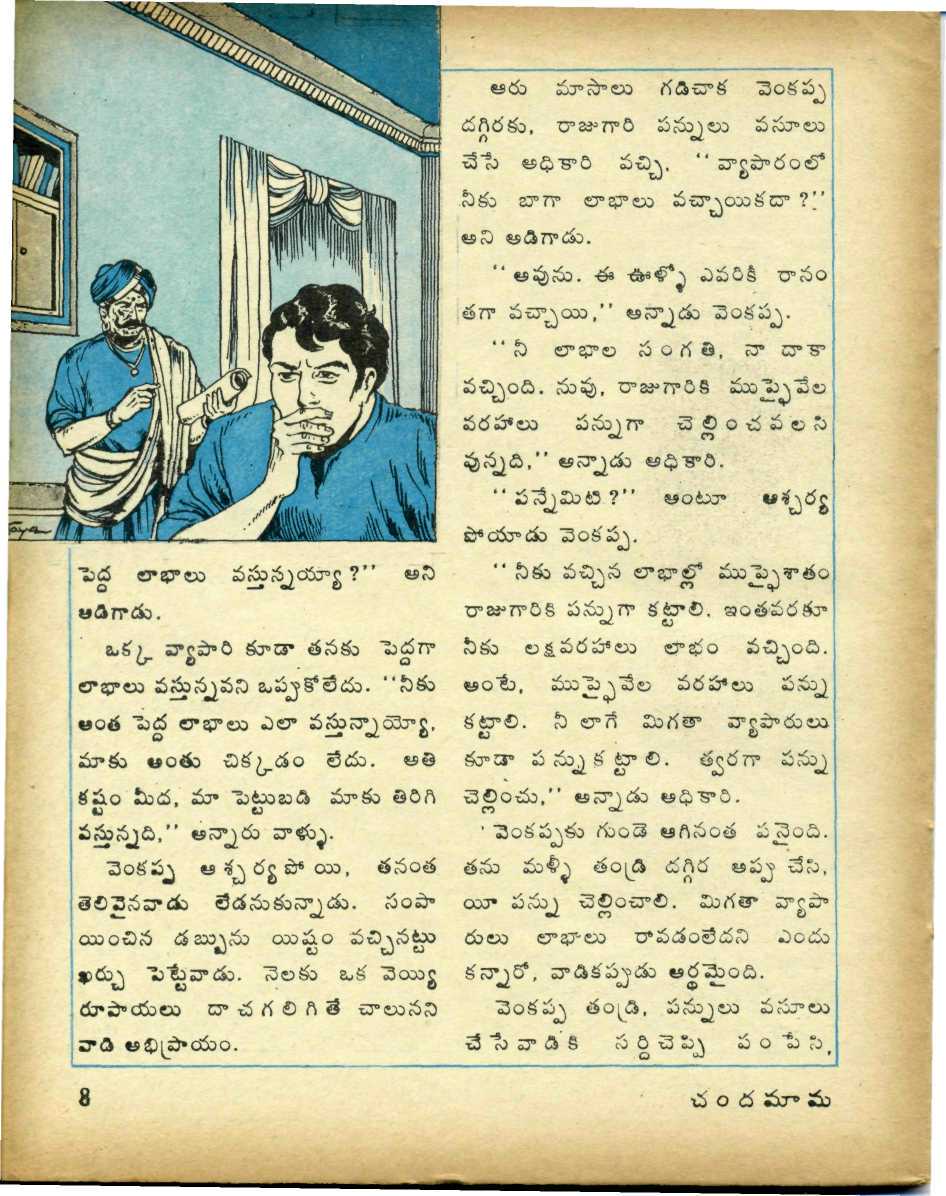 పెద్ద లాభాలు వస్తున్నయ్యా ?'' అని
అడిగాడు.
ఒక్క వ్యాపారి కూడా తనకు పెద్దగా
లాభాలు వస్తున్నవని ఒప్పుకోలేదు. ‘‘నీకు
అంత పెద్ద లాభాలు ఎలా వస్తున్నాయ్యో,
మాకు అంతు చిక్కడం లేదు. అతి
కష్టం మీద, మా పెట్టుబడి మాకు తిరిగి
వస్తున్నది,'' అన్నారు వాళ్ళు.
వెంకప్ప ఆశ్చర్యపోయి, తనంత
తెలివైనవాడు లేడనుకున్నాడు. సంపా
యించిన డబ్బును యిష్టం వచ్చినట్టు
ఖర్చు పెట్టేవాడు. నెలకు ఒక వెయ్యి
రూపాయలు దాచగలిగితే చాలునని
వాడి అభిప్రాయం.
ఆరు మాసాలు గడిచాక వెంకప్ప
దగ్గిరకు, రాజుగారి పన్నులు వసూలు
చేసే అధికారి వచ్చి, ‘‘వ్యాపారంలో
నీకు బాగా లాభాలు వచ్చాయికదా ?''
అని అడిగాడు.
‘‘అవును. ఈ ఊళ్ళో ఎవరికీ రానం
తగా వచ్చాయి,'' అన్నాడు వెంకప్ప.
‘‘నీ లాభాల సంగతి, నా దాకా
వచ్చింది. నువు, రాజుగారికి ముప్ఫైవేల
వరహాలు పన్నుగా చెల్లించవలసి
వున్నది,'' అన్నాడు అధికారి.
‘‘పన్నేమిటి ?'' అంటూ ఆశ్చర్య
పోయాడు వెంకప్ప.
‘‘నీకు వచ్చిన లాభాల్లో ముప్ఫైశాతం
రాజుగారికి పన్నుగా కట్టాలి. ఇంతవరకూ
నీకు లక్షవరహాలు లాభం వచ్చింది.
అంటే, ముప్ఫైవేల వరహాలు పన్ను
కట్టాలి. నీలాగే మిగతా వ్యాపారులు
కూడా పన్నుకట్టాలి. త్వరగా పన్ను
చెల్లించు,'' అన్నాడు అధికారి.
వెంకప్పకు గుండె ఆగినంత పనైంది.
తను మళ్ళీ తండ్రి దగ్గిర అప్పు చేసి,
యీ పన్ను చెల్లించాలి. మిగతా వ్యాపా
రులు లాభాలు రావడంలేదని ఎందు
కన్నారో, వాడికప్పుడు అర్థమైంది.
వెంకప్ప తండ్రి, పన్నులు వసూలు
చేసేవాడికి సర్దిచెప్పి పంపేసి,
8
చందమామ